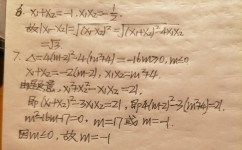 6. x₁+x₂=-1, x₁x₂=-½.
故|x₁-x₂|=√(x₁-x₂)²=√(x₁+x₂)²-4x₁x₂
=√3
7. △=4(m-2)²-4(m²+4)=-16m≥0, m≤0
x₁+x₂=-2(m-2), x₁x₂=m²+4
x₁²+x₂²-x₁x₂=21,
即(x₁+x₂)²-3x₁x₂=21, 即4(m-2)²-3(m²+4)=21,
m²-16m-17=0. m=17或m=-1.
因m≤0, 故m=-1